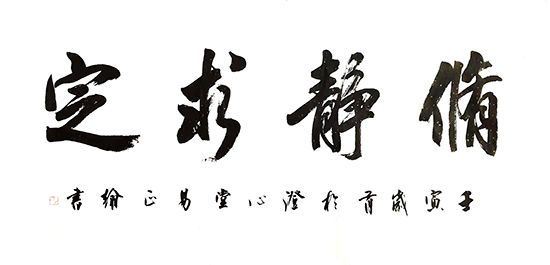 脩静求定
壬寅歲首於澄心堂易正綸書